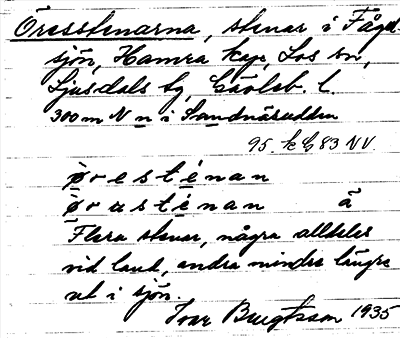 Öresstenarna, stenar i Fågel-
sjön, Hamra kap, Los sn,
Ljusdals tg, Gävleb. l.
300 m N n i Sandnäsudden
95. k G 83 NV
ørestenan
ørustenan å
Flera stenar, några alldeles
vid land, andra mindre längre
ut i sjön.
Ivar Bengtsson 1935